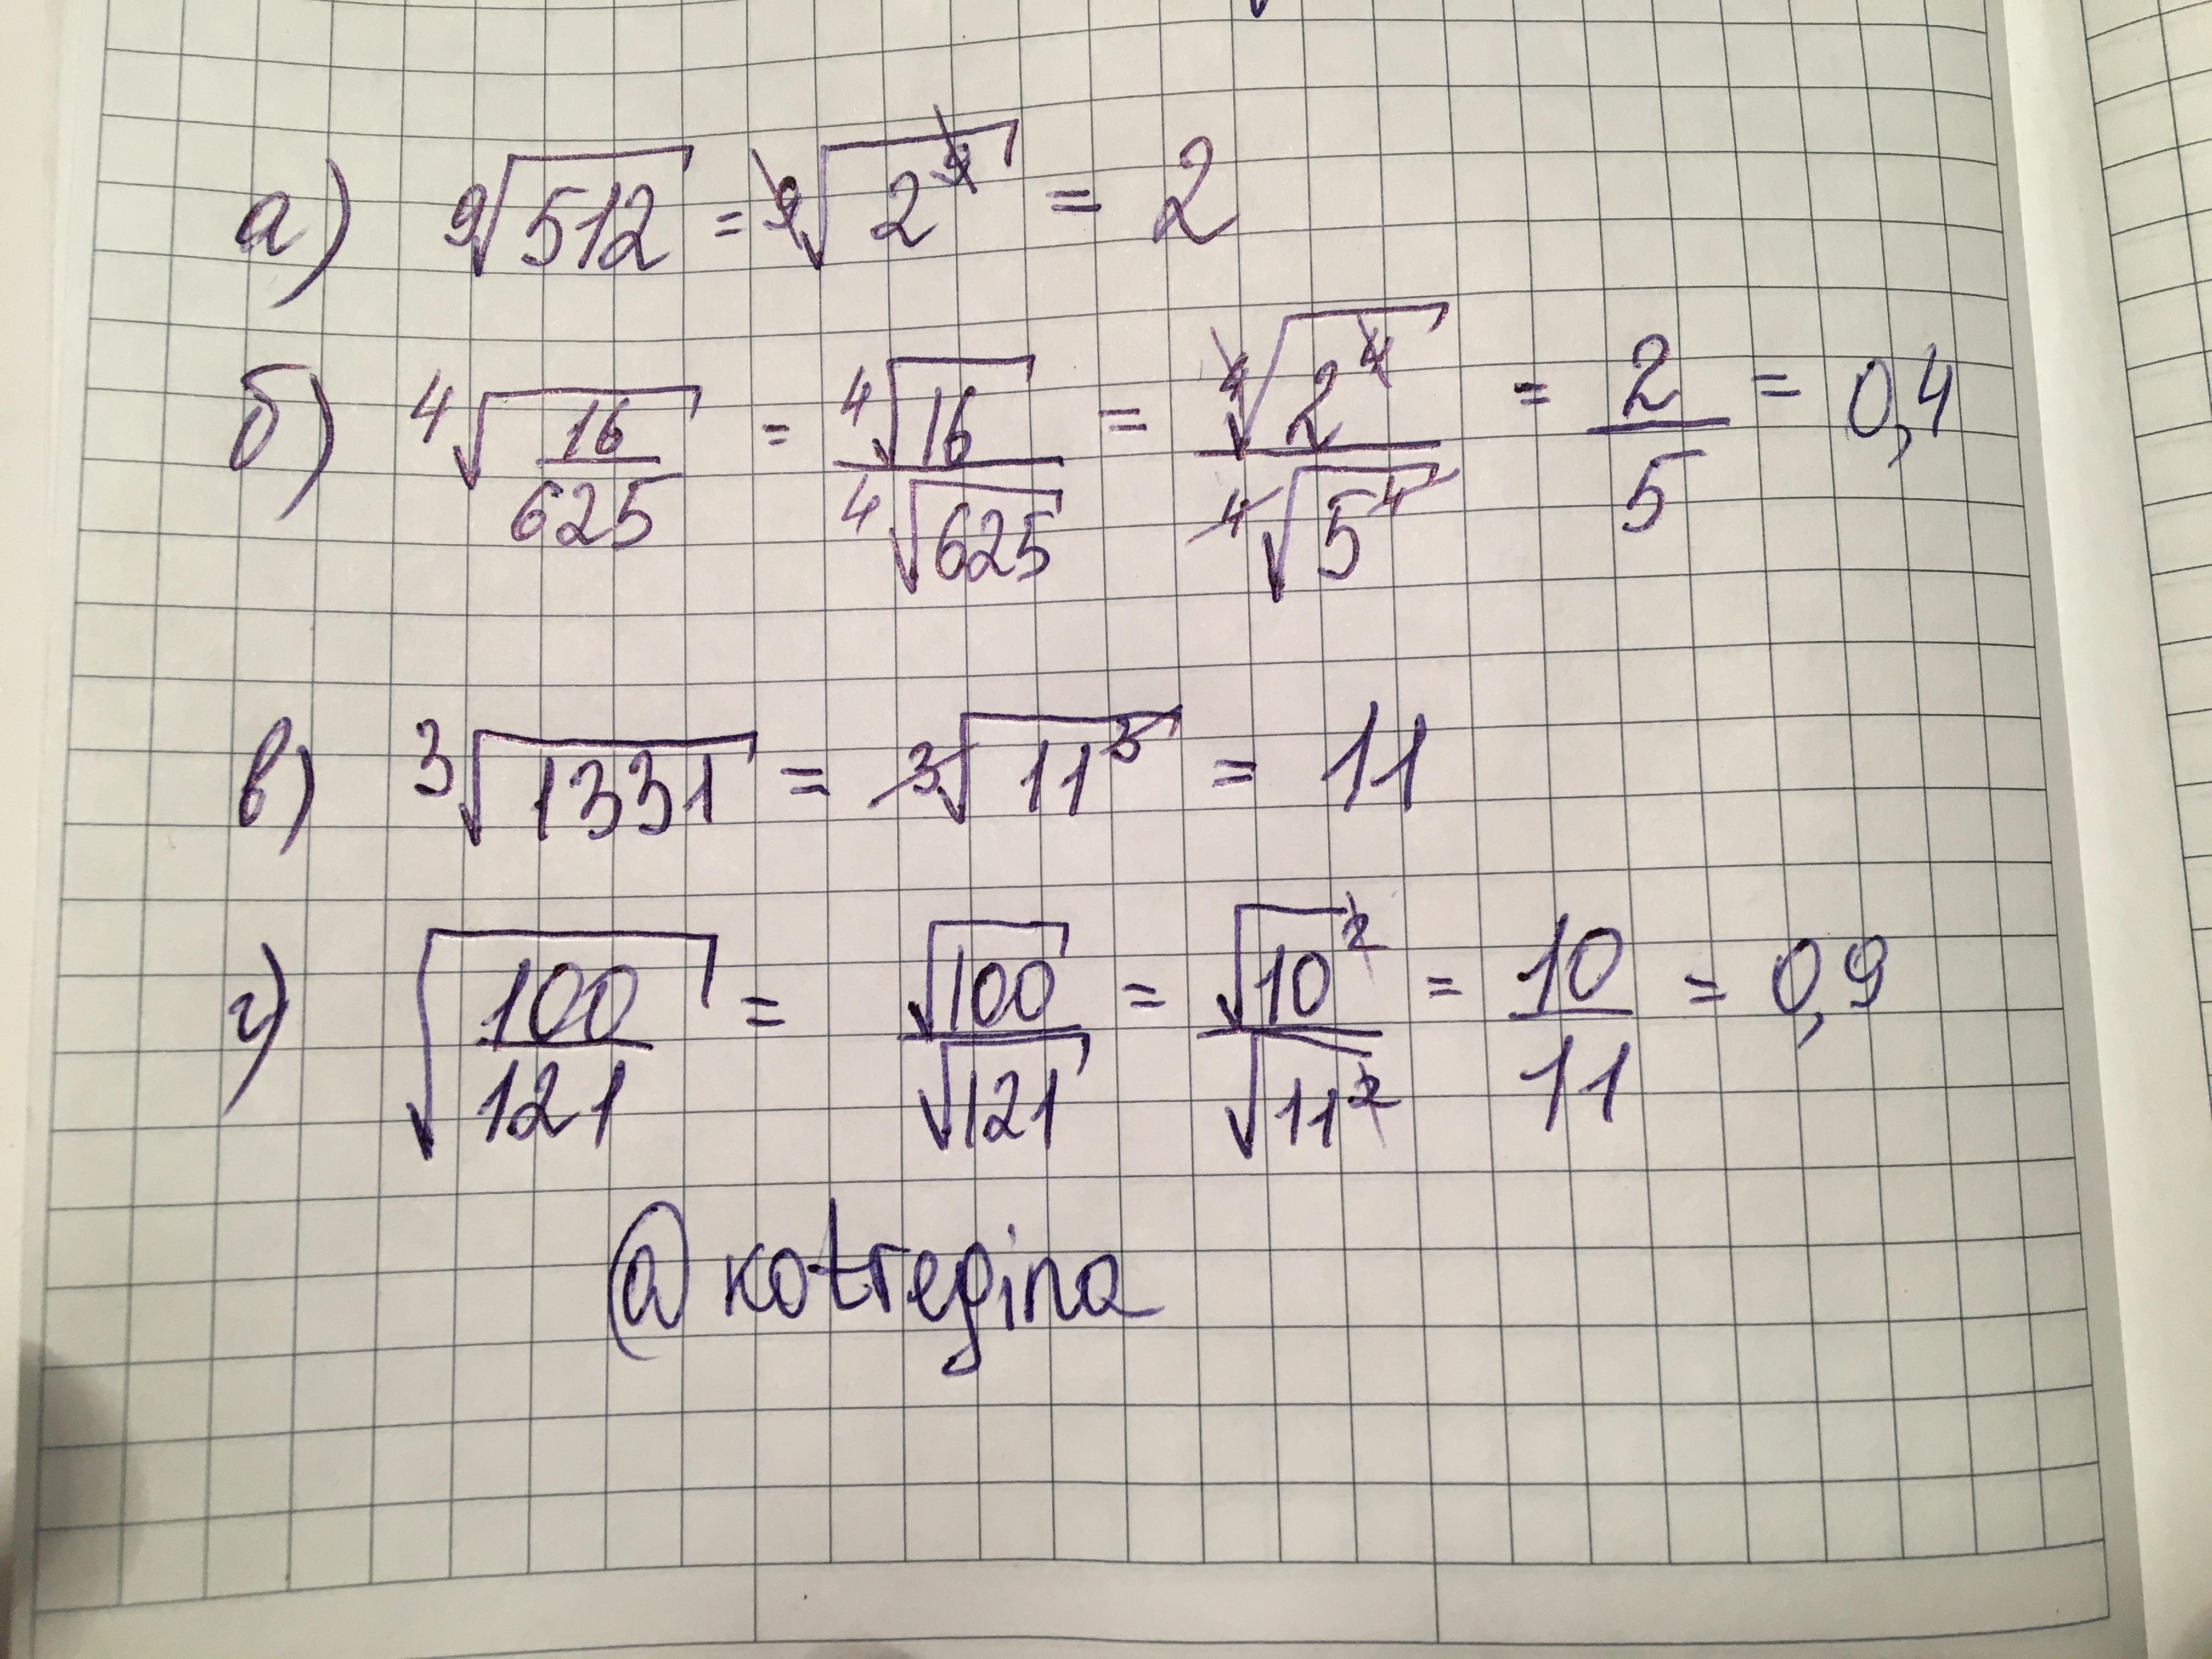 а) ⁹√512 = ⁹√2⁹ = 2
б) ⁴√(16/625) = ⁴√16/⁴√625 = ⁴√2⁴/⁴√5⁴ = 2/5 = 0,4
в) ³√1331 = ³√11³ = 11
г) √(100/121) = √100/√121 = √10²/√11² = 10/11 = 0,9
@kotregina